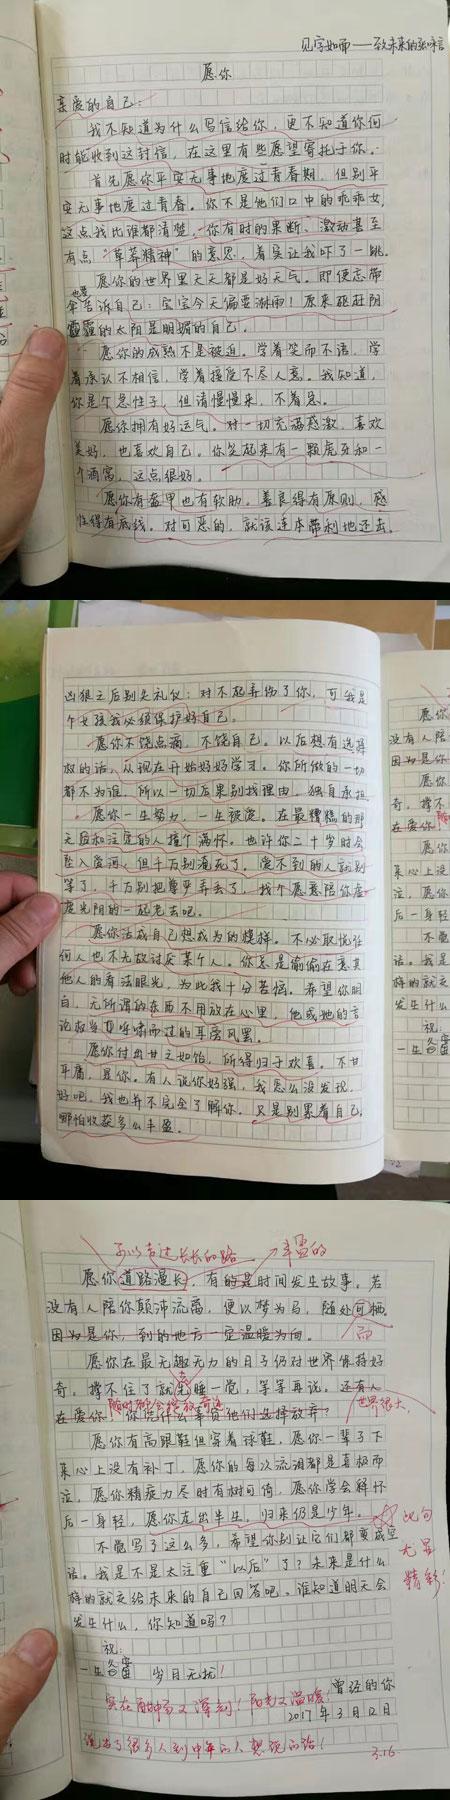 见字如面——致未来的
愿你
亲爱的自己：
我不知道为什么写信给你，更不知道你何
时能收到这封信，在这里有些愿望寄托于你。
首先愿你平安无事地度过青春期，但别平
安无事地度过青春。你不是他们口中的乖乖女，
这点我比谁都清楚，你有时的果断、激动甚至
有点“草莽精神”的意思，着实让我吓了一跳。
愿你的世界里天天都是好天气。即使忘带
伞也要告诉自己：宝宝今天偏要淋雨！原来驱赶阴
霾的太阳是明媚的自己。
愿你的成熟不是被迫。学着笑而不语，学
着承认不相信，学着接受不尽人意。我知道，
你是个急性子，但请慢慢来，不着急。
愿你拥有好运气。对一切充满感激，喜欢
美好，也喜欢自己。你笑起来有一颗虎牙和一
个酒窝，这点很好。
愿你有盔甲也有软肋。善良得有原则，感
性得有底线。对可恶的，就该连本带利地还击。
凶狠之后别失礼仪：对不起弄伤了你，可我是
个女孩我必须保护好自己。
愿你不饶点滴，不饶自己。以后想有选择
权的话，从现在开始好好学习。你所做的一切
都不为谁，所以一切后果别找理由，独自承担。
愿你一生努力，一生被爱。在最糟糕的那
天因和注定的人撞个满怀。也许你二十岁时会
坠入爱河，但千万别淹死了。爱不到的人就别
等了，千万别把尊严弄丢了，找个愿意陪你虚
度光阴的一起老去吧。
愿你活成自己想成为的模样。不必取悦任
何人也不无故讨厌某个人。你总是偷偷在意其
他人的看法眼光，为此我十分苦恼。希望你明
白，无所谓的东西不用放在心里，他或她的言
论权当是呼啸而过的耳旁风罢。
愿你付出甘之如饴，所得归于欢喜。不甘
平庸，是你。有人说你好强，我怎么没发现，
好吧，我也并不完全了解你。只是别累着自己，
哪怕收获多么丰盈。
可以考虑长长的路
丰盈的
愿你道路漫长，有的是时间发生故事。若
没有人陪你颠沛流离，便以梦为马，随处可栖。
因为是你，到的地方一定温暖为向。
而
愿你在最无趣无力的日子仍对世界保持好
奇。撑不住了就先睡一觉，等等再说。还有人
去
随时都会绽放奇迹
世界很大，
在爱你，你凭什么辜负他们选择放弃？
愿你有高跟鞋但穿着球鞋，愿你一辈子下
来心上没有补丁，愿你的每次流泪都是喜极而
泣，愿你精疲力尽时有树可倚，愿你学会释怀
后一身轻，愿你走出半生，归来仍是少年。
此句
尤显
精彩！
不觉写了这么多，希望你别让它们都变成空
话。我是不是太注重“以后”了？未来是什么
样的就交给未来的自己回答吧。谁知道明天会
发生什么，你知道吗？
祝：
一生 岁月无扰！
曾经的你
2017年3月12日
3.16